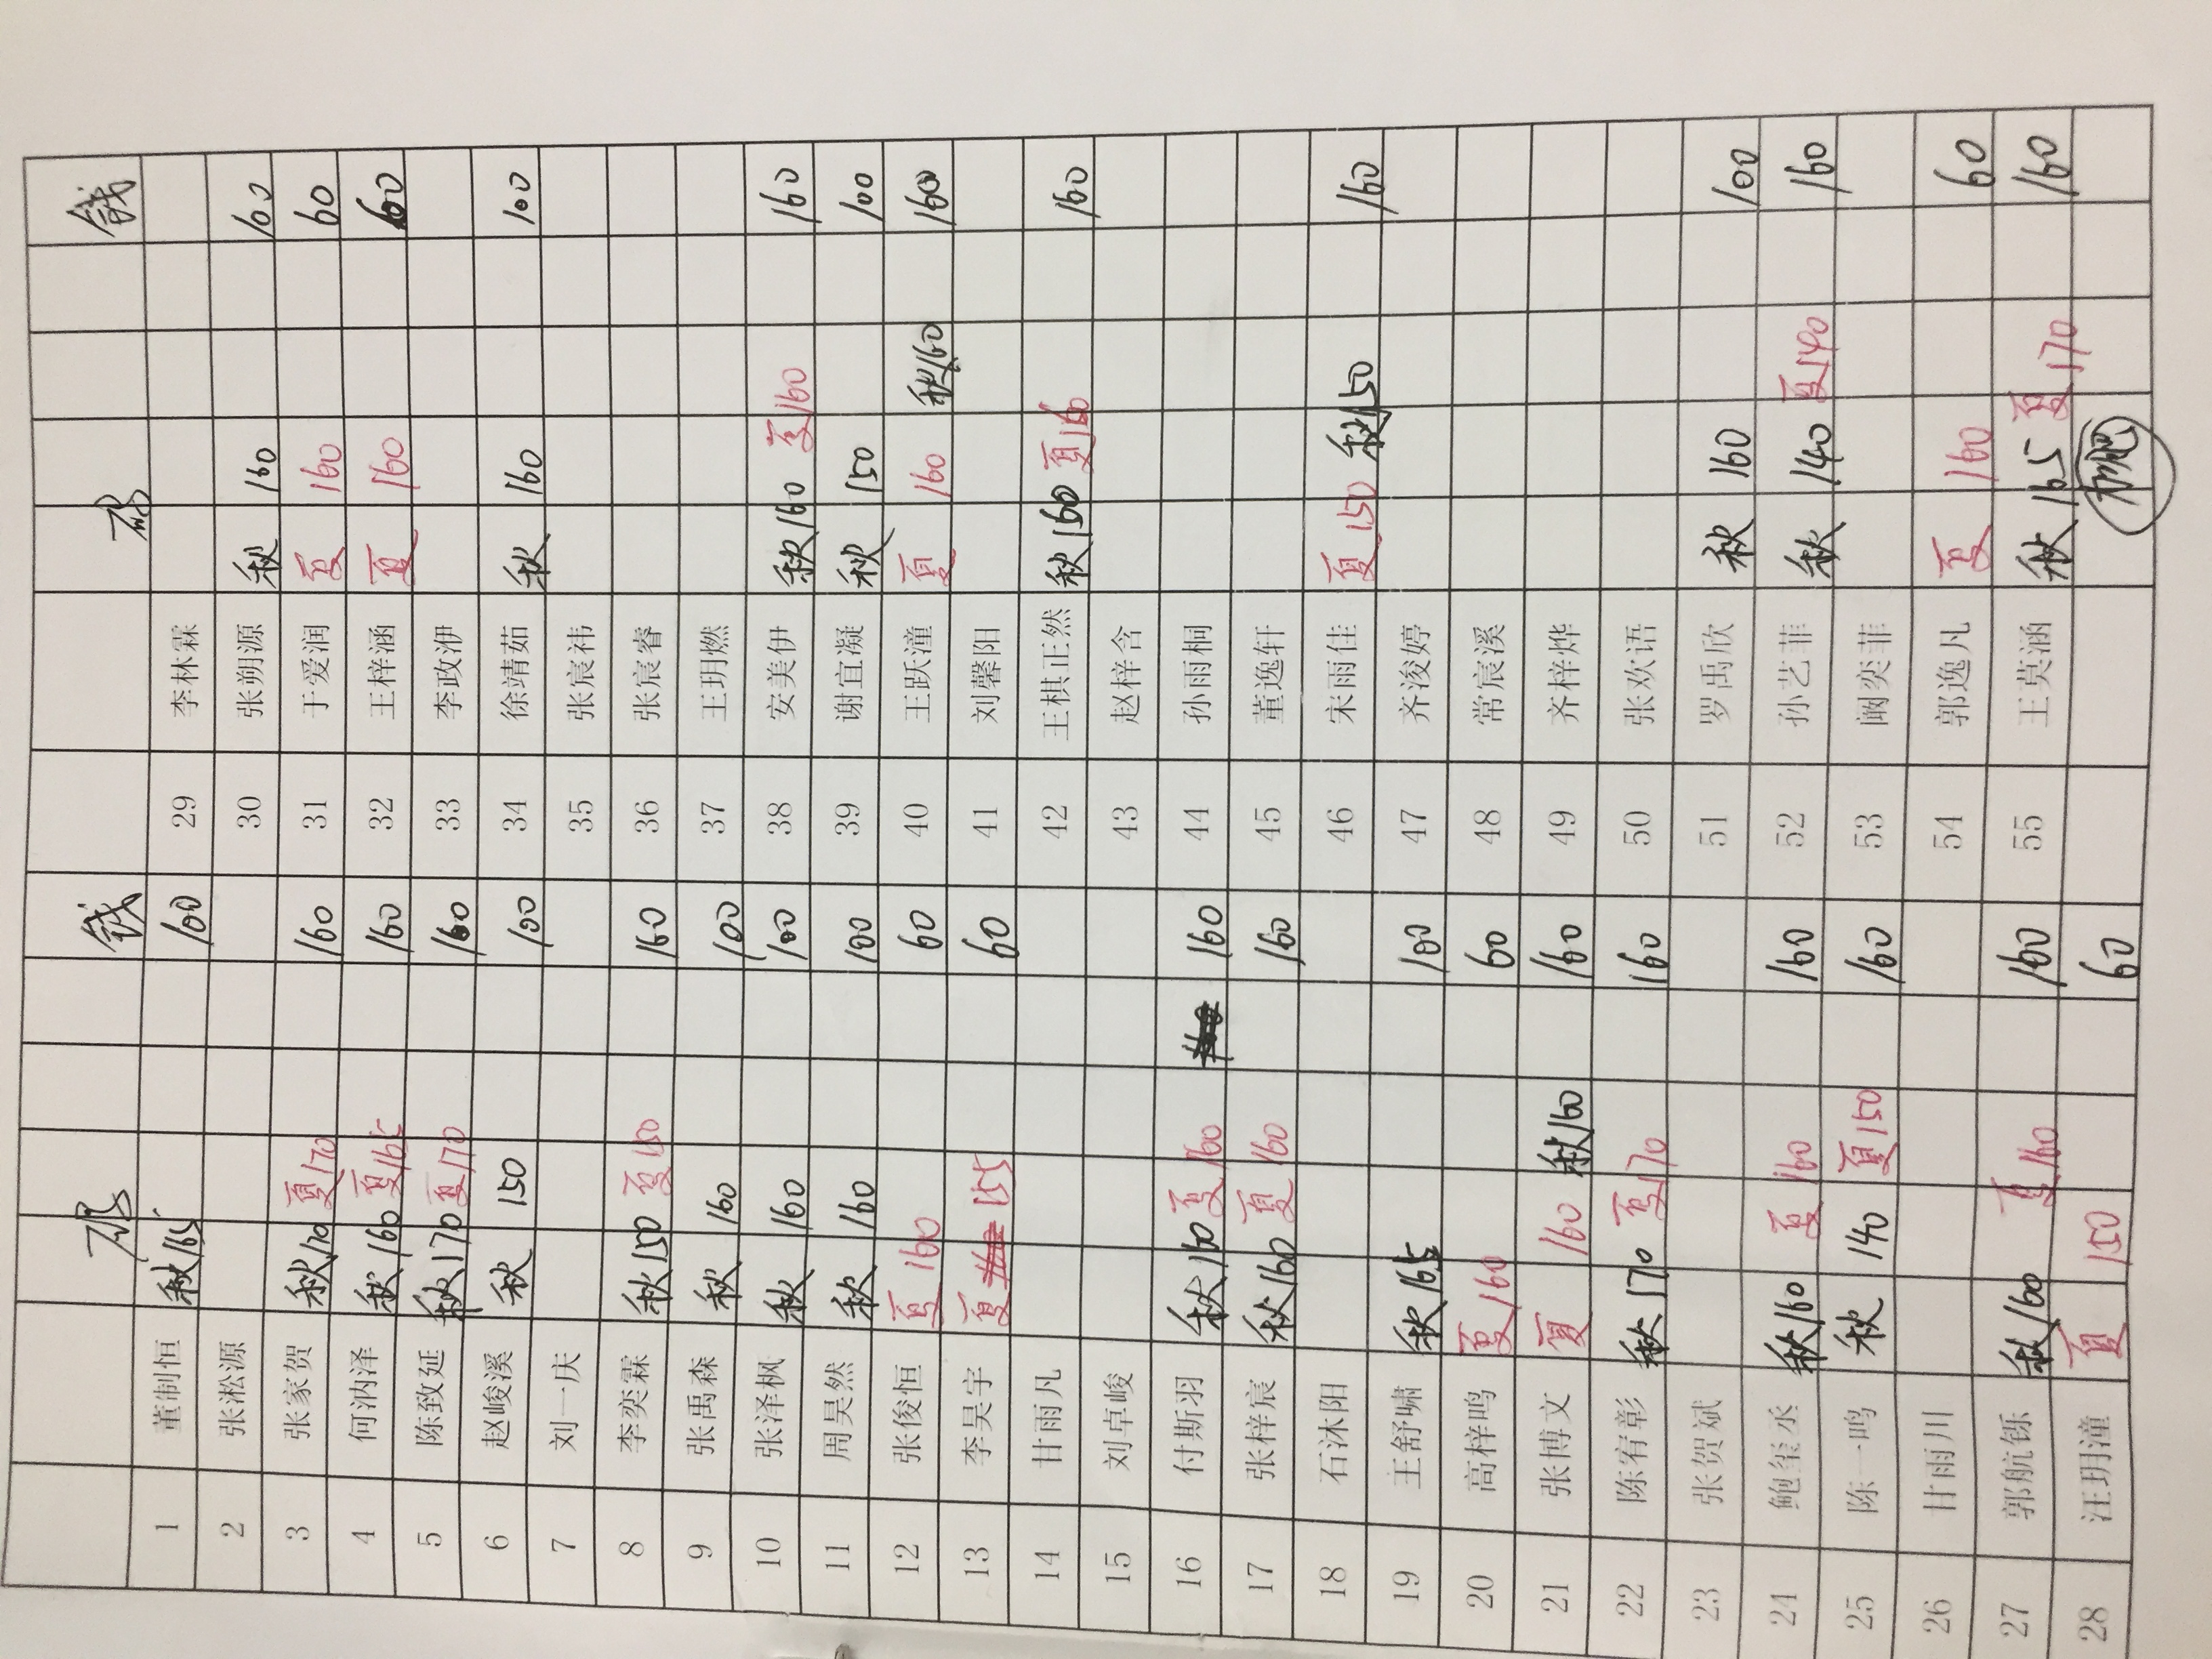 码 钱 码 钱
1 董制恒 秋165 100 29 李林霖
2 张淞源 30 张朔源 秋 160 100
3 张家贺 秋170 夏170 160 31 于爱润 夏 160 60
4 何汭泽 秋160 夏165 160 32 王梓涵 夏 160 60
5 陈致延 秋170 夏170 160 33 李政洢
6 赵峻溪 秋 150 100 34 徐靖茹 秋 160 100
7 刘一庆 35 张宸祎
8 李奕霖 秋150 夏150 160 36 张宸睿
9 张禹森 秋 160 100 37 王玥燃
10 张泽枫 秋 160 100 38 安美伊 秋160 夏160 160
11 周昊然 秋 160 100 39 谢宜凝 秋 150 100
12 张俊恒 夏 160 60 40 王跃潼 夏 160 秋160 160
13 李昊宇 夏 155 60 41 刘馨阳
14 甘雨凡 42 王棋正然 秋160 夏160 160
15 刘卓峻 43 赵梓含
16 付斯羽 秋160 夏160 160 44 孙雨桐
17 张梓宸 秋160 夏160 160 45 董逸轩
18 石沐阳 46 宋雨佳 夏150 秋150 160
19 王舒啸 秋165 100 47 齐浚婷
20 高梓鸣 夏160 60 48 常宸溪
21 张博文 夏 160 秋160 160 49 齐梓烨
22 陈宥彰 秋170 夏170 160 50 张欢语
23 张贺斌 51 罗禹欣 秋 160 100
24 鲍玺丞 秋160 夏160 160 52 孙艺菲 秋 140 夏140 160
25 陈一鸣 秋 140 夏150 160 53 阚奕菲
26 甘雨川 54 郭逸凡 夏 160 60
27 郭航铄 秋160 夏160 160 55 王莫涵 秋165 夏170 160
28 汪玥潼 夏 150 60 加肥